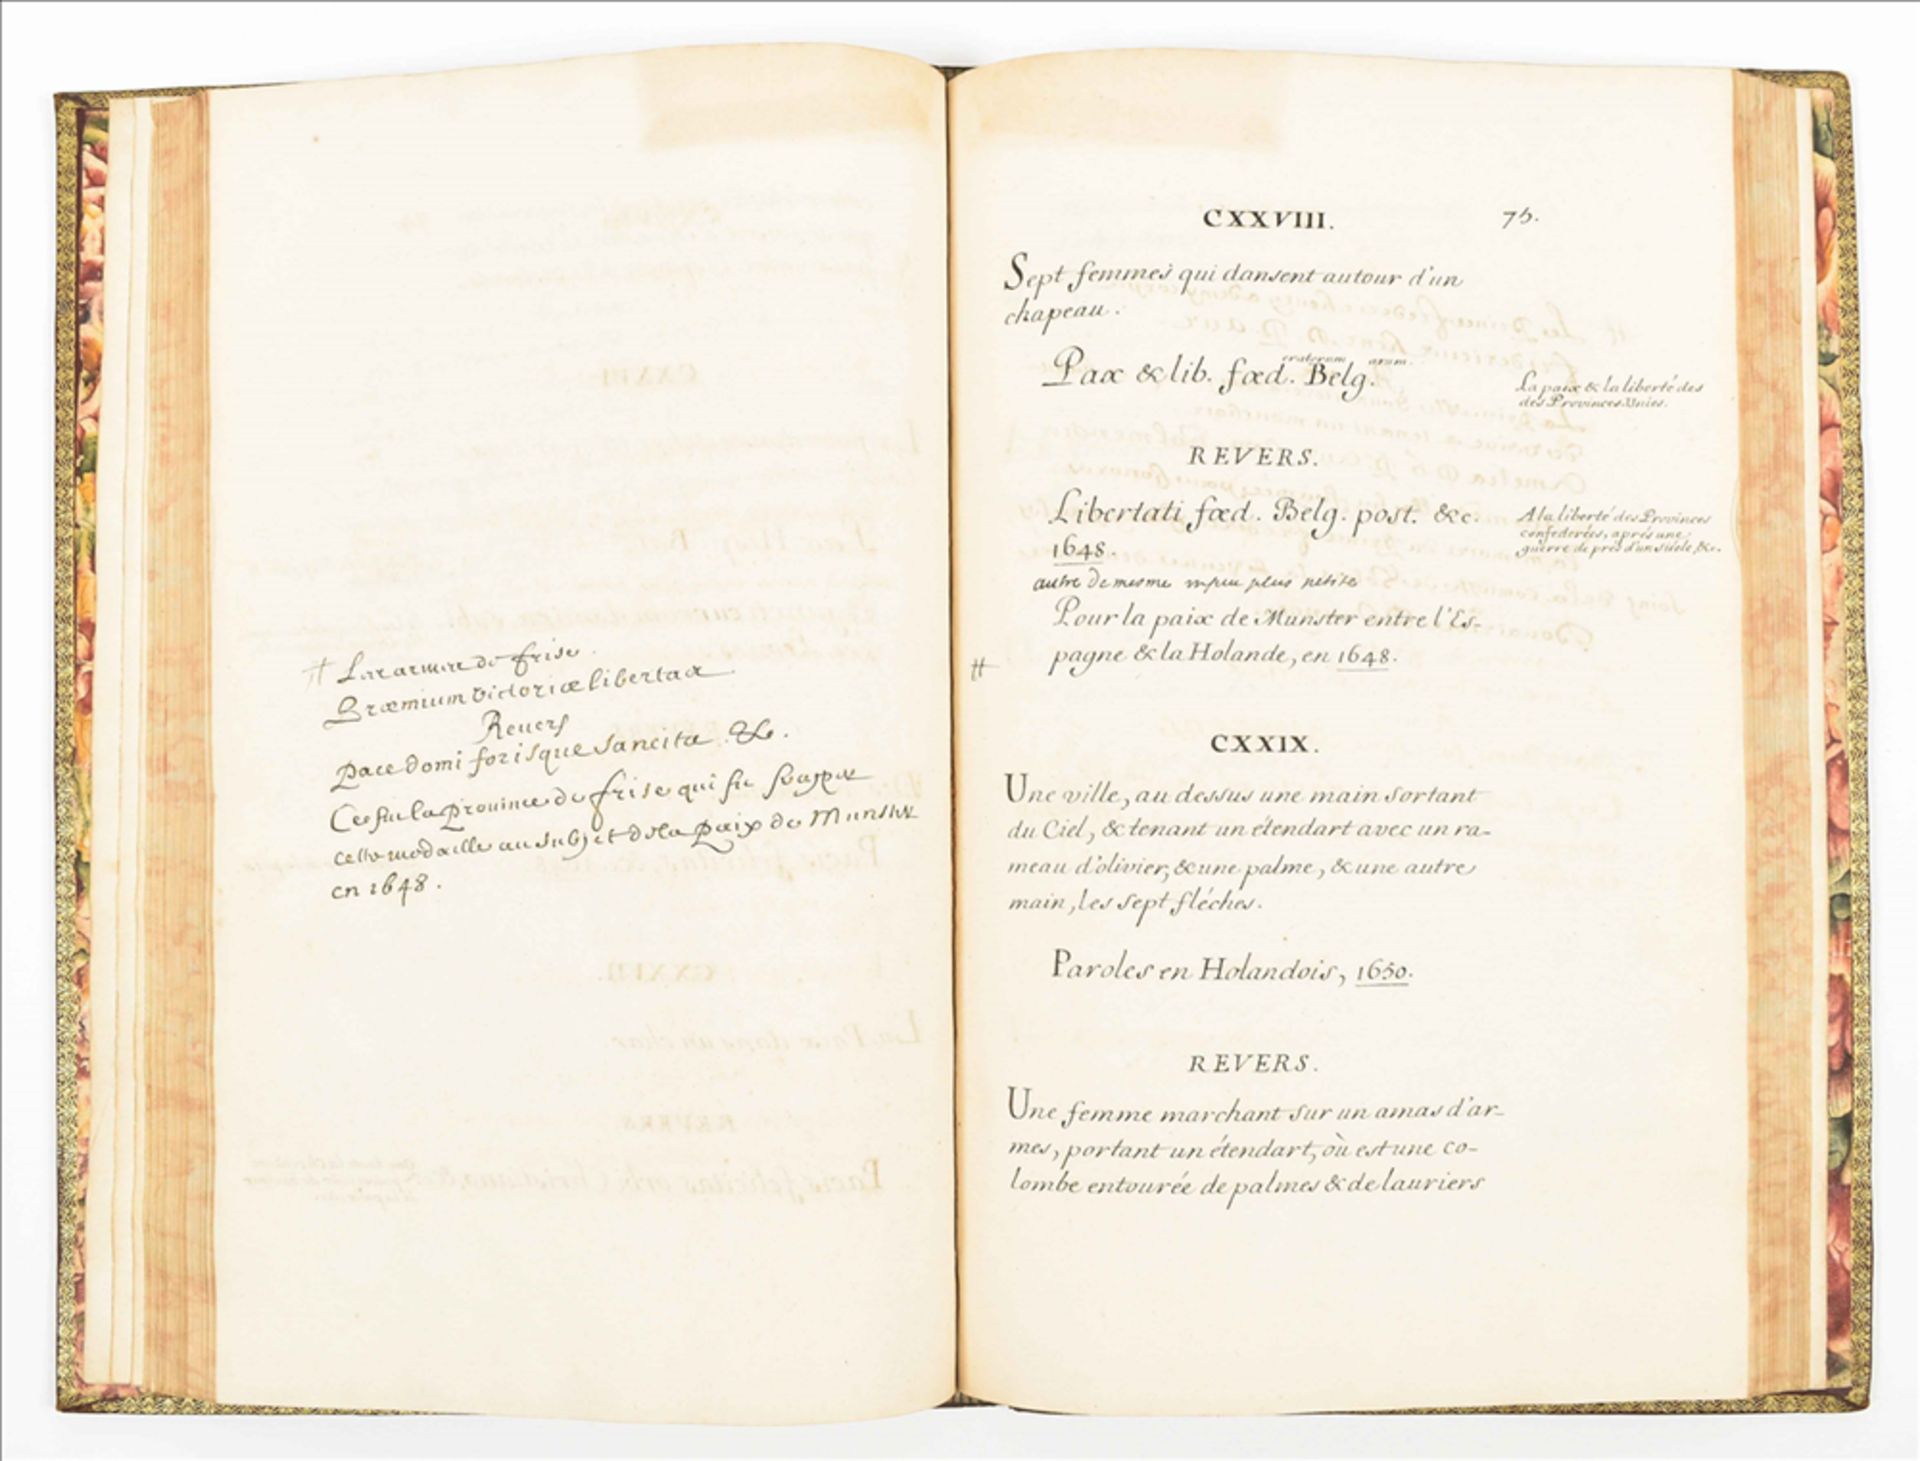 # Les armes de frise.
Præmium victoriæ libertas
Revers
pace domi forisque sancita &c.
Ce fut la province de frise qui fit frapper
cette medaille au subjet de la paix de Munster
en 1648.
CXXVIII.
75.
Sept femmes qui dansent autour d'un
chapeau.
eratorum arum.
Pax & lib. fœd. Belg.
La paix & la liberté des
des Provinces Unies.
REVERS.
Libertati fœd. Belg. post. &c.
1648.
A la liberté des Provinces
confederées, aprés une
guerre de prés d'un siécle, &c.
autre de mesme un peu plus petite
Pour la paix de Munster entre l'Es-
pagne & la Holande, en 1648.
#
CXXIX.
Une ville, au dessus une main sortant
du Ciel, & tenant un étendart avec un ra-
meau d'olivier, & une palme, & une autre
main, les sept fléches.
Paroles en Holandois, 1650.
REVERS.
Une femme marchant sur un amas d'ar-
mes, portant un étendart, où est une co-
lombe entourée de palmes & de lauriers